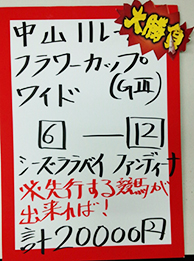 大勝負
中山11レース
フラワーカップ
ワイド (GⅢ)
6 — 12
シーズララバイ ファンディーナ
※先行する競馬が
出来れば!
計20000円